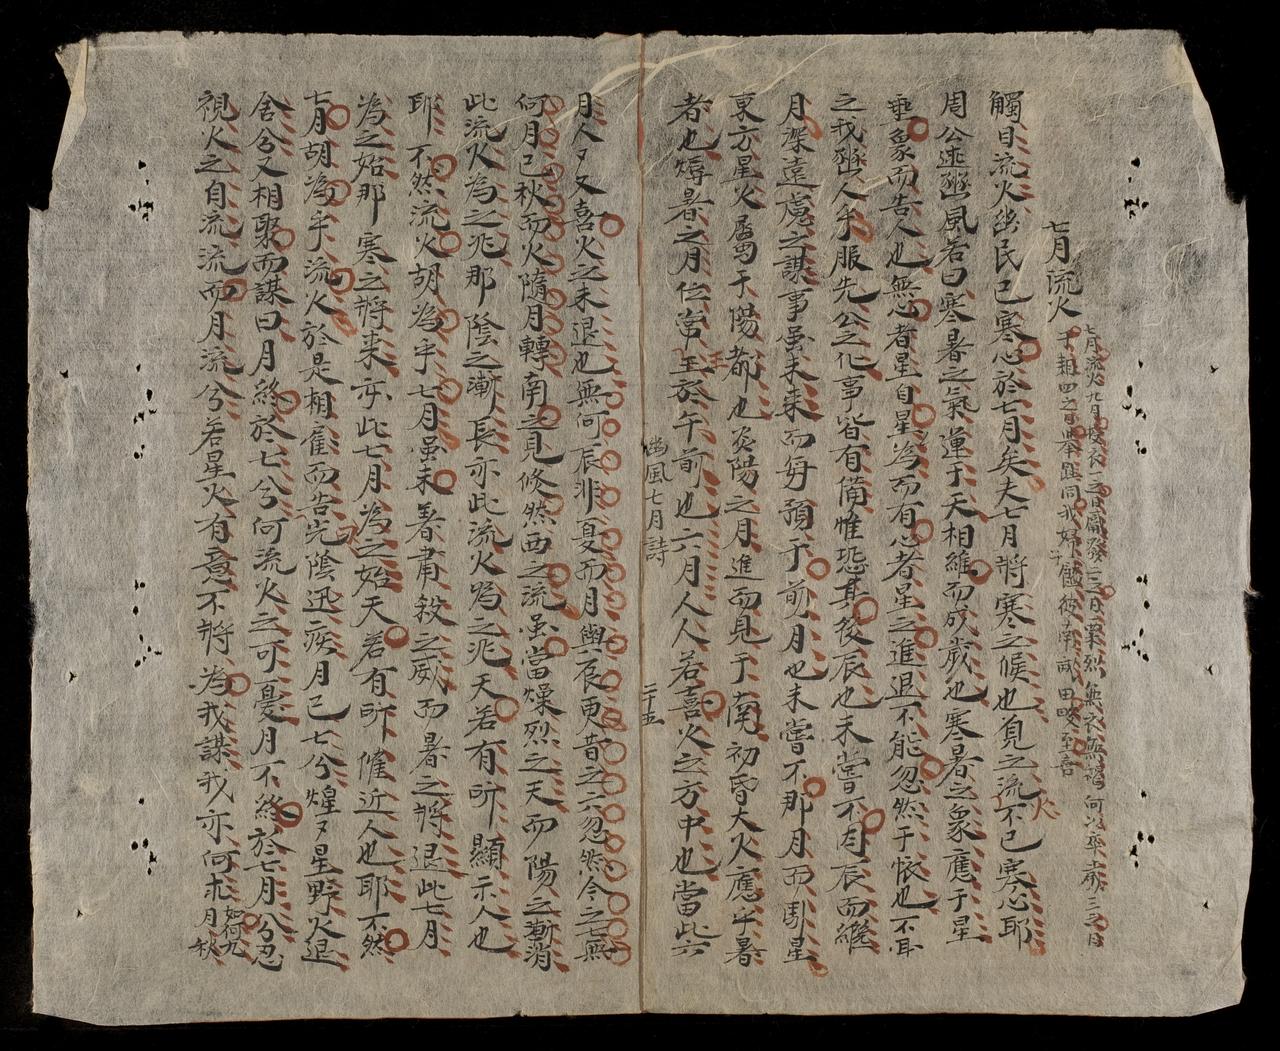 七月流火
七月流火九月授衣一之日觱發二之日栗烈無衣無褐何以卒歲三之日
于耜四之日舉趾同我婦子饁彼南畝田畯至喜
觸目流火豳民已寒心於七月矣夫七月將寒之候也見火之流不已寒心耶
周公述豳風若曰寒暑之氣運于天相維而成歲也寒暑之象應于星
垂象而告人也無心者星自星為而有心者星之進退不能忽然于懷也不耳
之我豳人乎服先公之化事皆有備惟恐其後辰也未嘗不因辰而纔
月深遠慮之謀事虽未來而每預于前月也未嘗不那月而馴星
東方星火屬于陽都也炎陽之月進而見于南初昏大火應乎暑
者也㷫暑之月位當王於午前也六月人人若喜火之方中也當此六
豳風七月詩
二十五
月人々又喜火之未退也無何辰非夏而月與辰更昔之六忽然今之七無
何月已秋而火隨月轉南之見倏然西之流虽當燥烈之天而陽之漸消
此流火為之兆那陰之漸長亦此流火為之兆天若有所顯示人也
耶不然流火胡為乎七月虽未暮肅殺之威而暑之將退此七月
為之始那寒之將來亦此七月為之始天若有所催近人也耶不然
七月胡為乎流火於是相寉而告光陰迅疾月已七兮煌々星野火退
舍兮又相聚而謀曰月終於七兮何流火之可憂月不終於七月兮忍
視火之自流流而月流兮若星火有意不將為我謀我亦何求
如何九
月秋